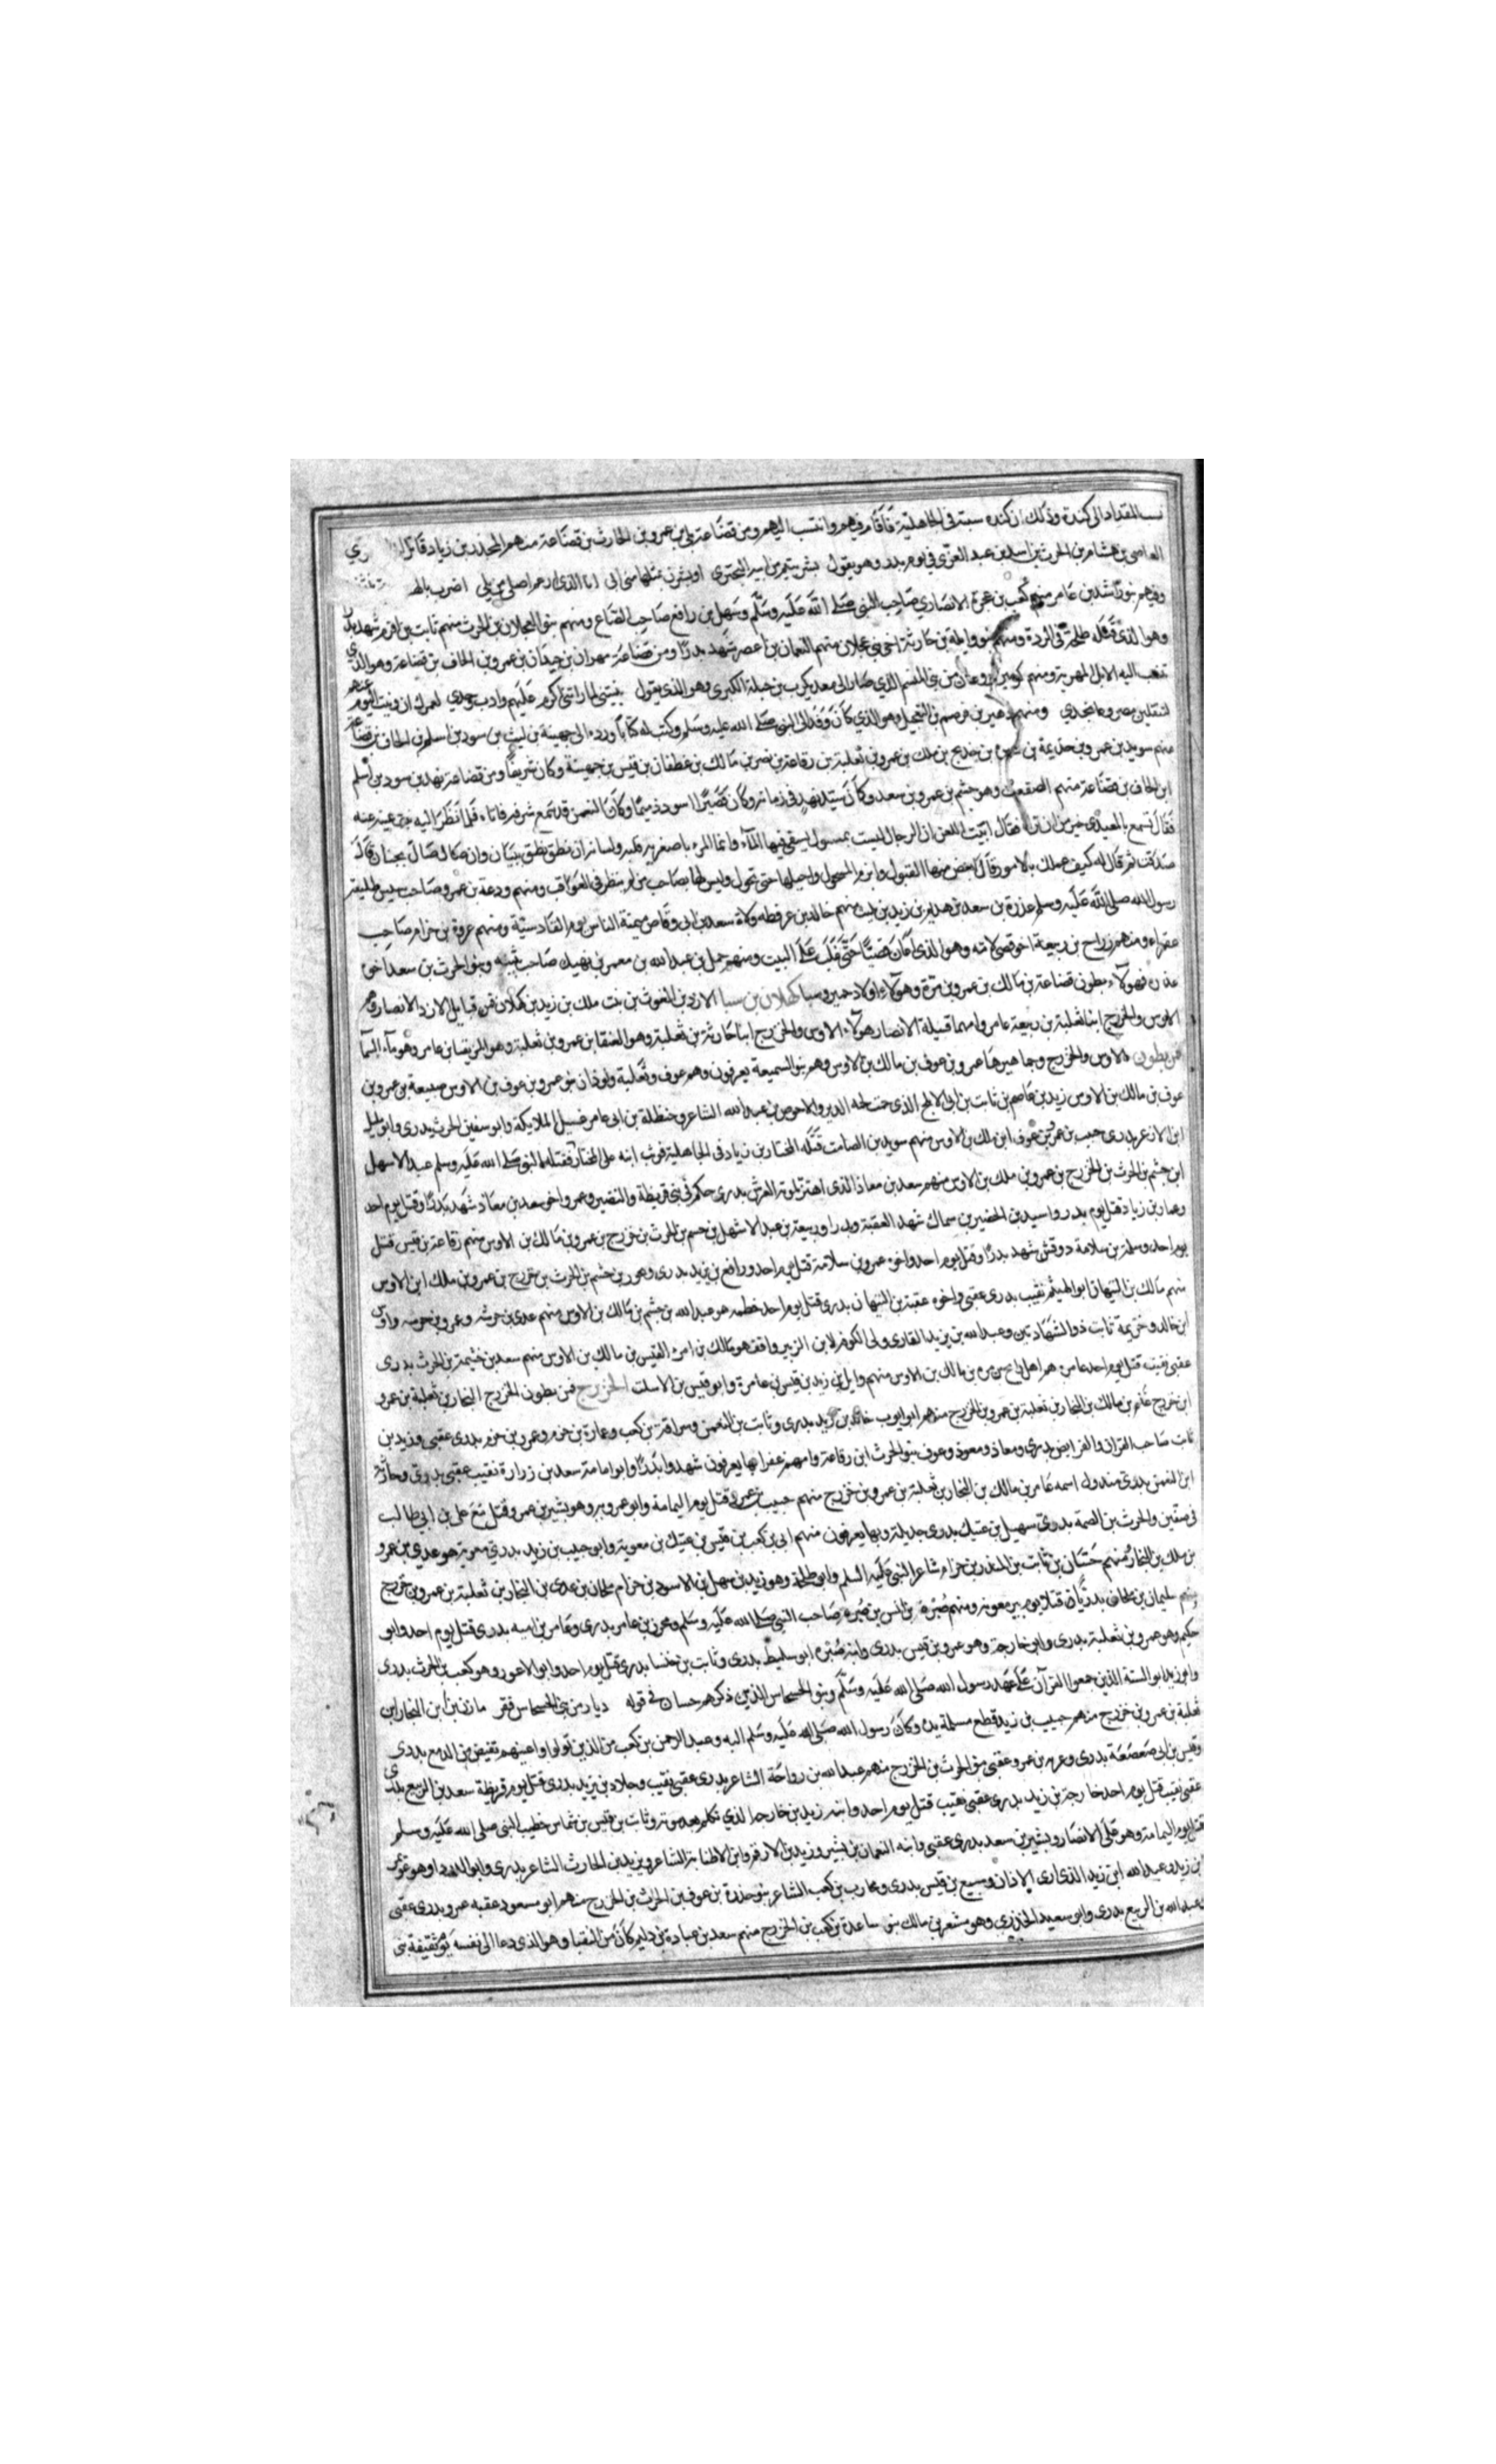 المقداد الى كندة وذلك ان كنده سبته فى الجاهلية فاقام فيهم وانتسب اليهم ومن قضاعة بلى بن عمرو بن الحارث بن قضاعة منهم المجذر بن زياد قاتل
العاصى بن هشام بن الحرث بن اسد بن عبد العزى فى يوم بدر وهو يقول بشر بيتم من ابيه البحترى او بشرن بمثلها منى ابى انا الذى ازعم اصلى من بلى اضرب
وفيهم بنو راشد بن عامر منهم كعب بن عجرة الانصاري صاحب النبى صلى الله عليه وسلم وسهل بن رافع صاحب الصاع ومنهم بنو العجلان بن الحرث منهم ثابت بن اقرم شهد بدرا
وهو الذى قتله طلحة فى الردة ومنهم بنو وايلة بن حارثة اخى بنى عجلان منهم النعمان بن اعصر شهد بدرا ومن قضاعة مهران بن حيدان بن عمرو بن الحاف بن قضاعة وهو الذى
تنسب اليه الابل المهرية ومنهم الذي صار الى معد يكرب بن جبلة الكبرى وهو الذى يقول
ومنهم ذهير بن قرضم بن العجيل وهو الذي كان وفد الى النبى صلى الله عليه وسلم وكتب له كتابا ورده الى جهينة بن ليث بن سود بن اسلم بن الحاف بن قضاعة
منهم سويد بن عمرو بن جذيمة بن سبرة بن خديج بن ملك بن عمرو بن ثعلبة بن رفاعة بن نضر بن مالك بن غطفان بن قيس بن جهينة وكان شريفا ومن قضاعة نهد بن سود بن اسلم
ابن الحاف بن قضاعة منهم الصقعب وهو جشم بن عمرو بن سعد وكان سيد نهد فى زمانه وكان قصيرا اسود ذميما وكان النعمن قد سمع شرفه فاتاه فلما نظر اليه نبت عينه عنه
فقال تسمع بالمعيدى خير من ان تراه فقال ابيت اللعن ان الرجال ليست بمسوك يسقى فيها الماء وانما المرء باصغريه قلبه ولسانه ان نطق نطق ببيان وان صال صال بجنان قال
صدقت ثم قال له كيف علمك بالامور قال انقض منها المفتول وابرم المسحول واحيلها حتى تحول وليس لها بصاحب من لم ينظر فى العواقب ومنهم ودعة بن عمرو صاحب
رسول الله صلى الله عليه وسلم عذرة بن سعد بن هذيم بن زيد بن ليث منهم خالد بن عرفطه ولاه سعد بن ابى وقاص ميمنة الناس يوم القادسية ومنهم عروة بن حزام صاحب
عفراء ومنهم رزاح بن ربيعة اخو قصى لامه وهو الذى اعان قصيا حتى غلب على البيت ومنهم جمل بن عبد الله بن معمر بن نهيك صاحب بثينه وبنو الحرث بن سعد اخو
عذره فهولاء بطون قضاعة بن مالك بن عمرو بن مرة وهولاء اولاد حمير وسبا كهلان بن سبا الازد بن الغوث بن نبت ملك بن زيد بن كهلان فمن قبايل الازد الانصار وهم
الاوس والخزرج ابنا ثعلبة بن ربيعة عامر وامهما قيلة الانصار هولاء الاوس والخزرج ابنا حارثة بن ثعلبة وهو العنقا بن عمرو بن ثعلبة وهو المزيقيا بن عامر وهو ماء السما
فمن بطون الاوس والخزرج وجماهيرها عمرو بن عوف بن مالك بن الاوس وهم بنو السميعة يعرفون وهم عوف وثعلبة ولوذان بنو عمرو بن عوف بن الاوس ضبيعة بن عمرو بن
عوف بن مالك بن الاوس زيد بن عاصم بن ثابت بن ابى الاقلح الذى حمت لحمه الدبر والاحوص بن عبد الله الشاعر وحنظلة بن ابى عامر غسيل الملايكة وابو سفين الحرث بدرى وابو مليل
ابن الازعر بدرى حبيب بن عمرو بن عوف ابن ملك بن الاوس منهم سويد بن الصامت قتله المختار بن زياد فى الجاهلية فوثب ابنه على المختار فقتله النبى صلى الله عليه وسلم عبد الاسهل
ابن جشم بن الحرث بن الخزرج بن عمرو بن ملك بن الاوس منهم سعد بن معاذ الذى اهتز لموته العرش بدرى حكم فى بنى قريظة والنضير وعمرو اخو سعد بن معاذ شهد بدرا وقتل يوم احد
وعمار بن زياد قتل يوم بدر واسيد بن الحضير بن سماك شهد العقبة وبدرا وربيعة بن عبد الاشهل بن جسم بن الحرث بن خزرج بن عمرو بن مالك بن الاوس منهم رفاعة بن قيس قتل
يوم احد وسلمة بن سلامة بن وقش شهد بدرا وقتل يوم احد واخوه عمرو بن سلامة قتل يوم احد ورافع بن يزيد بدرى وعمرو بن جشم بن الحرث بن خزرج بن عمرو بن ملك ابن الاوس
منهم مالك بن التيهان ابو الهيثم نقيب بدرى عقبى واخوه عقبة بن التيهان بدرى قتل يوم احد خطمه هو عبد الله بن جشم بن مالك بن الاوس منهم عدى بن خرشه وعمرو بن خرشه واوس
ابن خالد وخزيمة ثابت ذو الشهادتين وعبد الله بن يزيد القارى ولى الكوفه لابن الزبير واقف هو مالك بن امرء القيس بن مالك بن الاوس منهم سعد بن خثيمة بن الحرث بدرى
عقبى نقيب قتل يوم احد عامره هم اهل بن مره بن مالك بن الاوس منهم وايل بن زيد بن قيس بن عامرة وابو قيس بن الاسلت الخزرج فمن بطون الخزرج النجار بن ثعلبة بن عمرو
ابن خزرج غنم بن مالك بن النجار بن ثعلبة بن عمرو بن الخزرج منهم ابو ايوب خالد بن زيد بدرى وثابت بن النعمن وسراقة بن كعب وعمارة بن حزم وعمرو بن حزم بدرى عقبى وزيد بن
ثابت صاحب القران والفرايض بدرى ومعاذ ومعوذ وعوف بنو الحرث ابن رفاعة وامهم عفرا بها يعرفون شهدوا بدرا وابو امامة سعد بن زرارة نقيب عقبى بدرى وحارثة
ابن النعمن بدرى مبذول اسمه عامر بن مالك بن النجار بن ثعلبة بن عمرو بن خزرج منهم حبيب بن عمرو قتل يوم اليمامة وابو عمرو وهو بشير بن عمرو قتل مع على بن ابى طالب
فى صفين والحرث بن الصمة بدرى سهيل بن عتيك بدرى جديلة وبها يعرفون منهم ابى بن كعب بن قيس بن عتيك بن معوية وابو حبيب بن زيد بدرى معوية هو عدى بن عمرو
بن ملك بن النجار منهم حسان بن ثابت بن المنذر بن حزام شاعر النبى عليه السلم وابو طلحة وهو زيد بن سهل بن الاسود بن حزام ملحان بن عدى بن النجار بن ثعلبة بن عمرو بن خزرج
منهم سليمان بن ملحان بدريان قتلا يوم بير معونه ومنهم صرمة بن انس بن صرمه صاحب النبى صلى الله عليه وسلم ومحرز بن عامر بدرى وعامر بن اميه بدرى قتل يوم احد وابو
حكيم وهو عمرو بن ثعلبة بدرى وابو خارجة وهو عمرو بن قيس بدرى وابنه ابو سليط بدرى وثابت بن خنسا بدرى قتل يوم احد وابو الاعور وهو كعب بن الحرث بدرى
وابو زيد ابو الستة الذين جمعوا القرآن على عهد رسول الله صلى الله عليه وسلم وبنو الحسحاس الذين ذكرهم حسان فى قوله ديار من بنى الحسحاس قفر مازن بن ابن النجار ابن
ثعلبة بن عمرو بن خزرج منهم حبيب بن زيد قطع مسلمة يده وكان رسول الله صلى الله عليه وسلم اليه وعبد الرحمن بن كعب من الذين تولوا واعينهم تفيض من الدمع بدرى
وقيس بن ابى صعصعة بدرى وعمرو عقبى بنو الحرث بن الخزرج منهم عبد الله بن رواحة الشاعر بدرى عقبى نقيب وخلاد بن يزيد بدرى قتل يوم قريظة سعد بن الربيع بدرى
عقبى نقيب قتل يوم احد خارجة بن زيد بدرى عقبى نقيب قتل يوم احد وابنه زيد بن خارجه الذي تكلم بعد موته وثابت بن قيس بن شماس خطيب النبى صلى الله عليه وسلم
قتل يوم اليمامة وهو على الانصار وبشير بن سعد بدرى عقبى وابنه النعمان بن بشير وزيد بن الارقم وابن الاطنابة الشاعر ويزيد بن الحارث الشاعر بدرى وابو الدردا وهو عويمر
بن زيد وعبد الله ابن زيد الذى ارى الاذان وسبيع بن قيس بدرى ومحارب بن كعب الشاعر بنو خدرة بن عوف بن الحرث بن الخزرج منهم ابو مسعود عقبه عمرو بدرى عقبى
وعبد الله بن الربيع بدرى وابو سعيد الخدرى وهو مشعر بن مالك بنو ساعدة بن كعب بن الخزرج منهم سعد بن عبادة بن دليم كان من النقبا وهو الذى دعا الى نفسه يوم سقيفة بنى